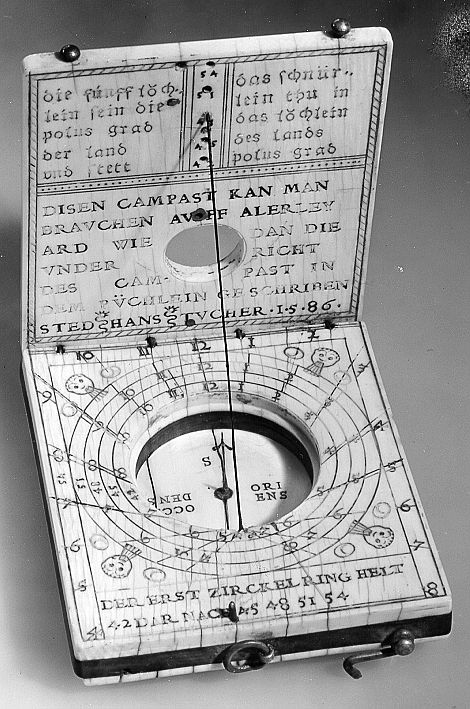 die fünff löch,
lein sein die
polus grad
der land
vnd stett
54
51
48
45
42
das schnür,,
lein thu in
das löchlein
des lands
polus grad
DISEN CAMPAST KAN MAN
BRAVCHEN AVFF ALERLEY
ARD WIE DAN DIE
VNDER RICHT
DES CAM- PAST IN
DEM PÜCHLEIN GESCHRIBEN
STED HANS TVCHER · 1 · 5 · 86 ·
10 11 12 1 2
S
OCCI ORI
DENS ENS
DER ERST ZIRCKEL RING HELT
42 DIR NACH 45 48 51 54
4 8